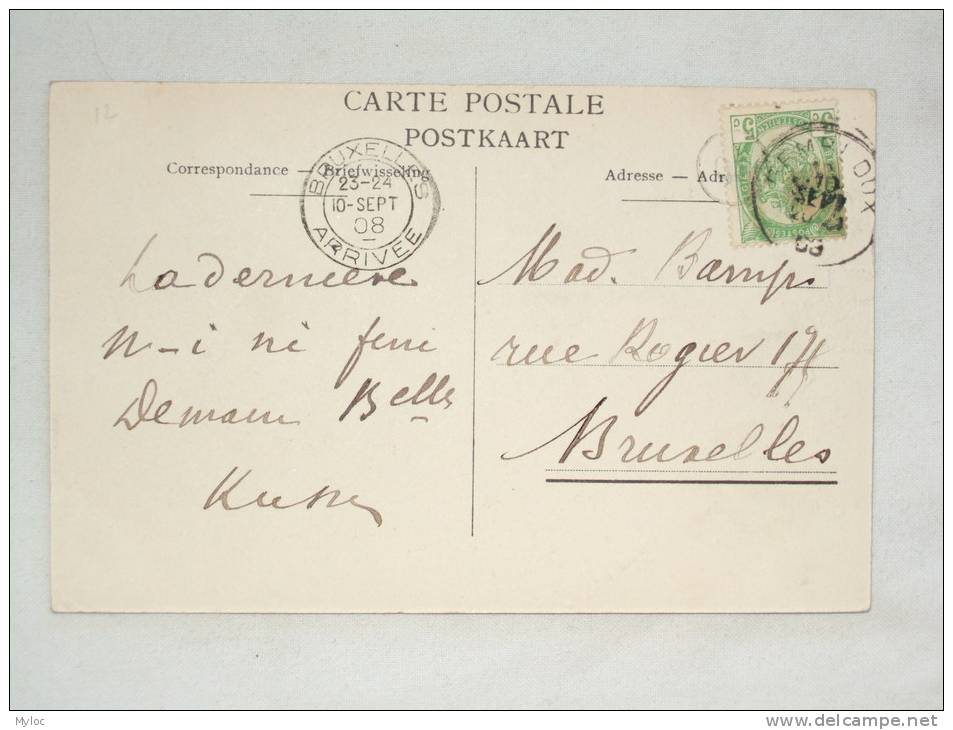 12
CARTE POSTALE
POSTKAART
Correspondance — Briefwisseling
Adresse — Adr
BRUXELLES
23-24
10-SEPT
08
ARRIVEE
5c
POSTES
GEMBLOUX
08
La dernière
n-i ni fini
Demain Belles
Mad. Bamps
rue Rogier 171
Bruxelles
Myloc
delcampe.net